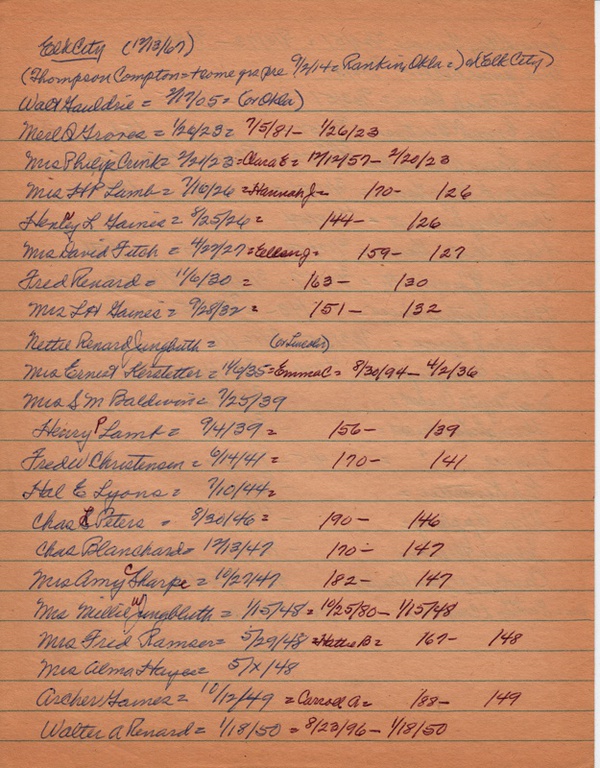 Elk City (12/13/67)
(Thompson Compton = + some gra pre 9/2/14 = Rankin, Okla =) or (Elk City)
Walt Gauldrie = 2/17/05 = (or Okla)
Merl J Groves = 1/26/23 = 7/5/81 - 1/26/23
Mrs Philip Crink = 2/21/23 = Clara E = 12/12/57 - 2/20/23
Mrs H P Lamb = 7/16/26 = Hannah J = /70 - /26
Henley L Gaines = 8/25/26 = /44 - /26
Mrs David Fitch = 4/22/27 = Ellen J = /59 - /27
Fred Renard = 11/6/30 = /63 - /30
Mrs L H Gaines = 9/28/32 = /51 - /32
Nettie Renard Jungbuth = (or)
Mrs Ernest Kerstetter = /35 = Emma C = 8/30/94 - 4/2/36
Mrs S M Baldwin = 7/25/39
Henry P Lamb = 9/4/39 = /56 - /39
Fred W Christensen = 6/14/41 = /70 - /41
Hal E Lyons = 7/10/44 =
Chas L Peters = 8/30/46 = /90 - /46
Chas Blanchard = 12/13/47 /70 - /47
Mrs Amy C Sharpe = 10/27/47 /82 - /47
Mrs Millie W Jungbluth = 1/15/48 = 10/25/80 - 1/15/48
Mrs Fred Ramser = 5/29/48 = Hattie B = /67 - /48
Mrs Alma Hayes = 5/x/48
Archer Gaines = 10/12/49 = Carrol A = /88 - /49
Walter A Renard = 1/18/50 = 8/23/96 - 1/18/50